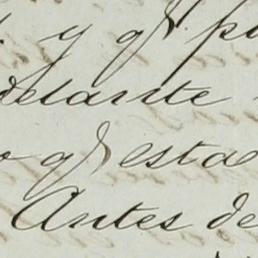 y qᵉ
delante
qᵉ esta
Antes de